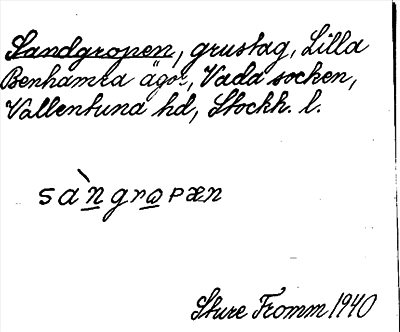 Sandgropen, grustag, Lilla
Benhamra ägor, Vada socken,
Vallentuna hd, Stockh. l.
sàngropæn
Sture Fromm 1940